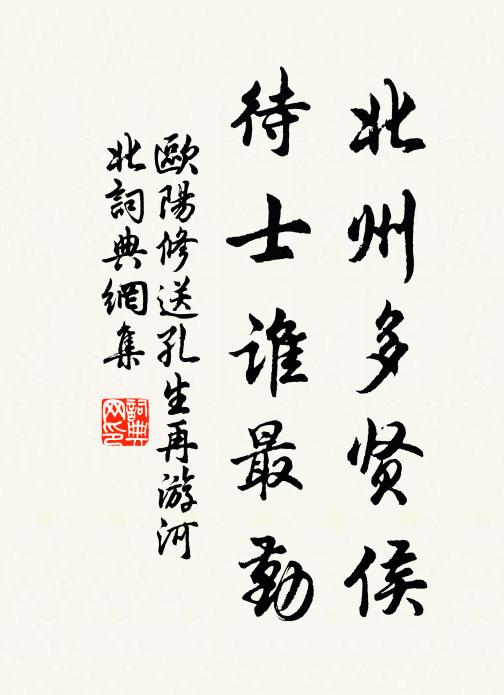 北州多贤侯
待士谁最勤
歐陽修送孔生再游河
北詞典網集
詞典
网印